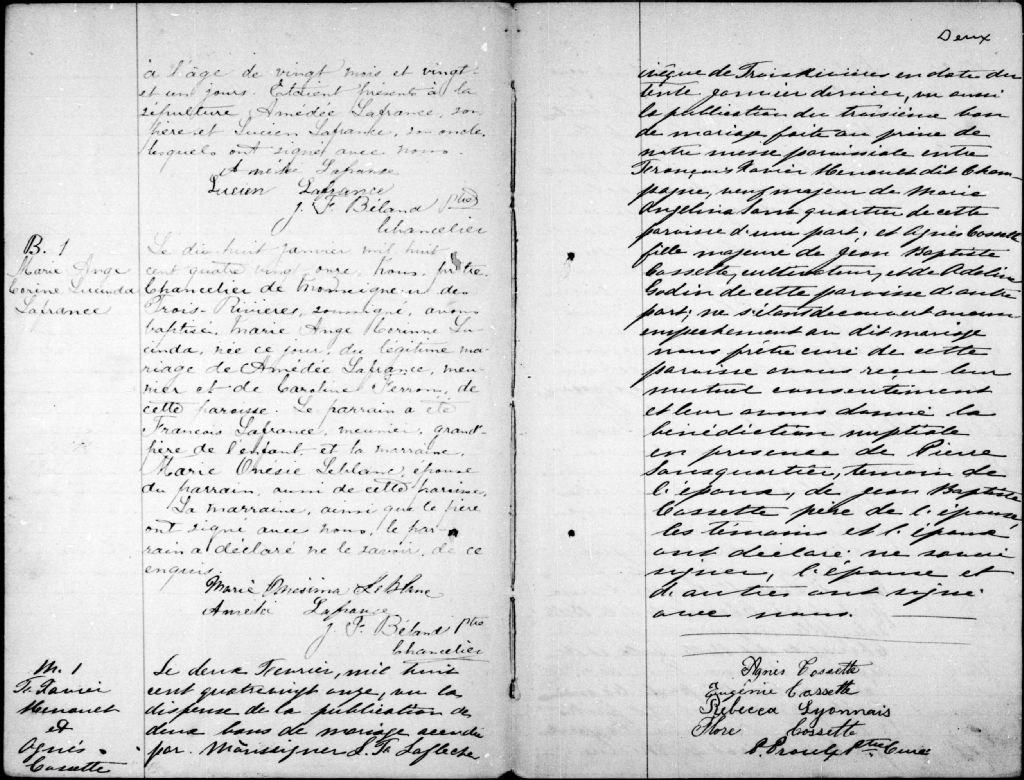 à l'âge de vingt mois et vingt-
et un jours. Etaient présents à la
sépulture, Amédée Lafrance, son
père et Lucien Lafrance, son oncle,
lesquels ont signé avec nous.
Amédé Lafranse
Lucien Lafrance
J. F. Béland Ptre
Chancelier
B. 1
Marie Ange
Corine Lucinda
Lafrance
Le dix huit janvier mil huit
cent quatre vingt onze, nous, prêtre,
Chancelier de Monseigneur des
Trois-Rivières, soussigné, avons
baptisé, Marie Ange Corinne Lu-
cinda, née ce jour, du légitime ma-
riage de Amédée Lafrance, meu-
nier et de Caroline Ferron, de
cette paroisse. Le parrain a été
François Lafrance, meunier, grand-
père de l'enfant et la marraine,
Marie Onésie Leblanc, épouse
du parrain, aussi de cette paroisse.
La marraine, ainsi que le père
ont signé avec nous, le par-
rain a déclaré ne le savoir, de ce
enquis.
Marie Onesima Leblanc
Améda Lafranse
J. F. Béland Ptre
Chancelier
M. 1
Fr Xavier
Menouet
et
Agnés
Cossette
Le deux Fevrier, mil huit
cent quatrevingt onze, vu la
dispense de la publication de
deux bans de mariage accordée
par Monseigneur L. F. Lafleche
Deux
évêque de Trois Rivières en date du
trente Janvier dernier, vu aussi
la publication du troisième ban
de mariage faite au prône de
notre messe paroissiale entre
François Xavier Menouet dit Cham-
pagne, veuf majeur de Marie
Angelina Sansquartier de cette
paroisse d'une part; et Agnès Cossette
fille majeure de Jean Baptiste
Cossette, cultivateur, et de Adeline
Godin de cette paroisse d'autre
part; ne s'étant découvert aucun
empechement au dit mariage
nous prêtre curé de cette
paroisse avons reçu leur
mutuel consentement
et leur avons donné la
bénédiction nuptiale
en presence de Pierre
Sansquartier, temoin de
l'époux, de Jean Baptiste
Cossette père de l'épouse
les témoins et l'époux
ont declaré ne savoir
signer, l'épouse et
d'autres ont signé
avec nous.
Agnès Cossette
Eugénie Cassette
Rebecca Lyonnais
Flore Cossette
P. Proulx Ptre Curé